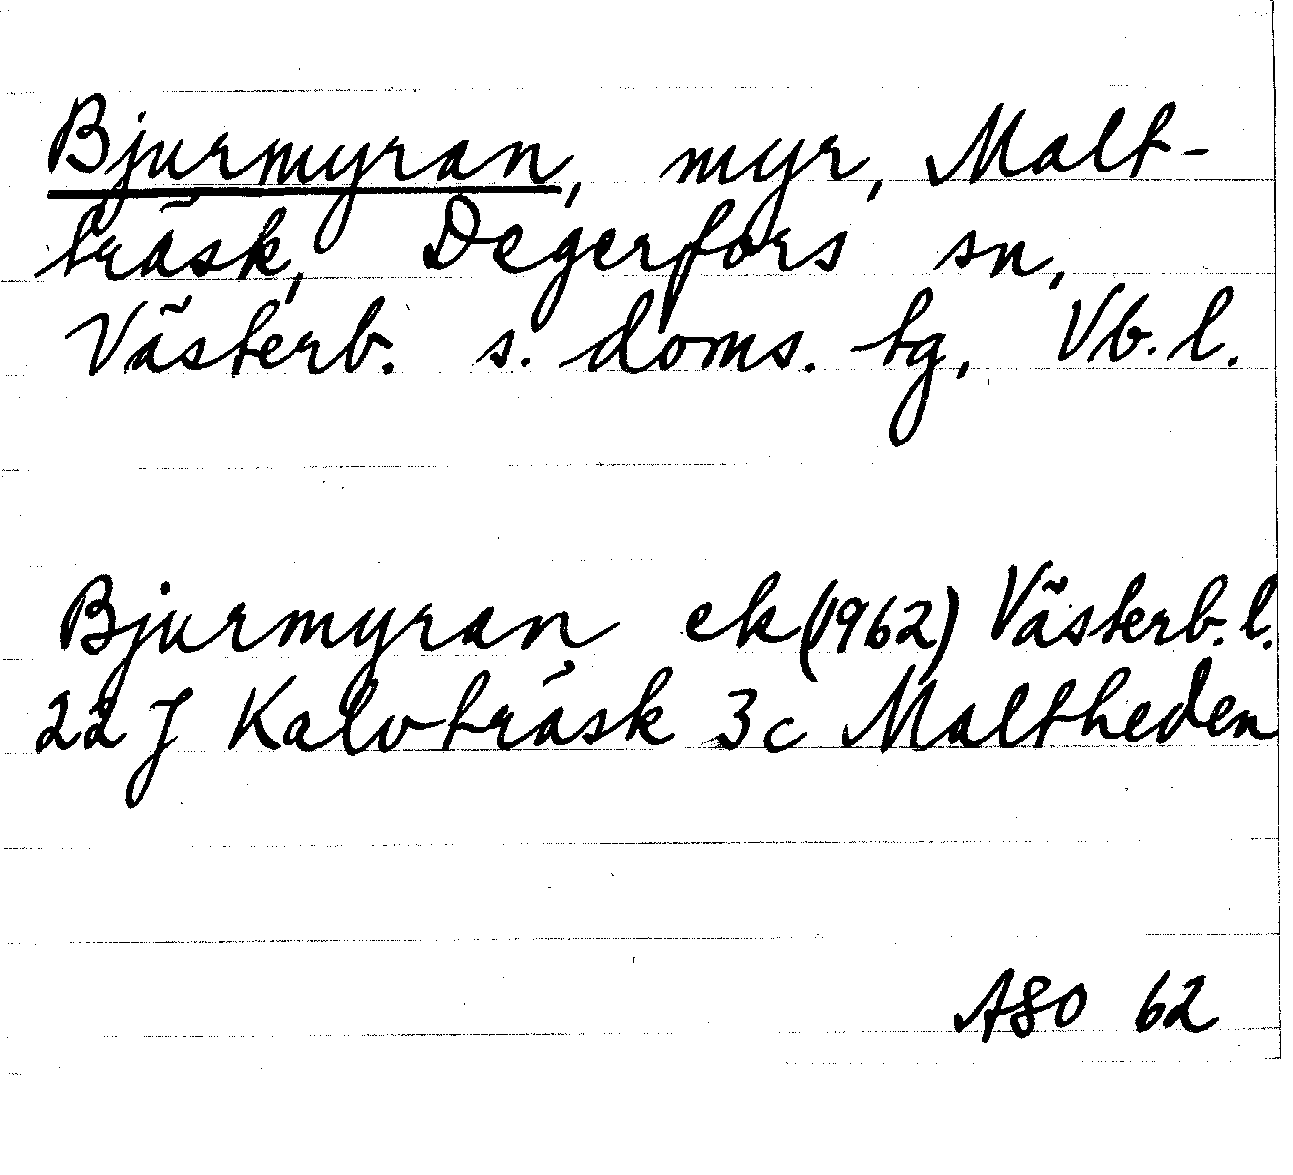 Bjurmyran, myr, Malt-
träsk, Degerfors sn,
Västerb. s. doms. tg, Vb. l.
Bjurmyran ek (1962) Västerb. l.
22 J Kalvträsk 3c Maltheden
ASO 62